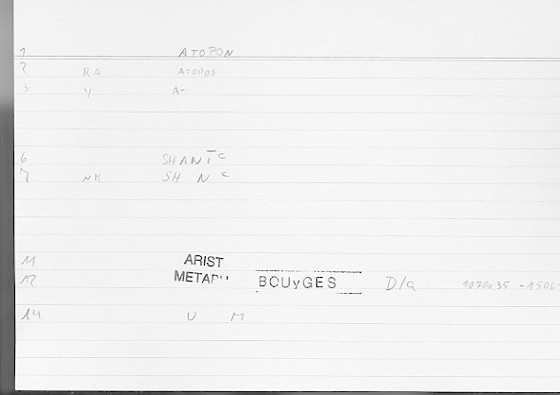 1 ATOPON
2 RA ATOPOS
3 Y A-
6 SHANTᶜ
7 NK SH N ᶜ
11 ARIST
12 METAPH BOUyGES D/a
14 U M